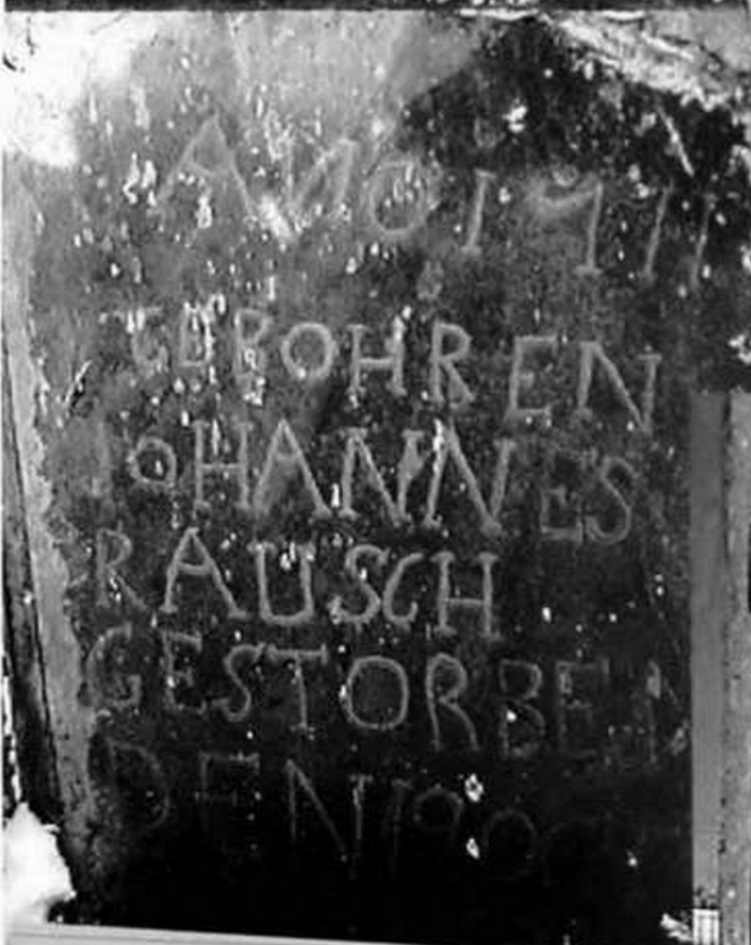 ANO 1711
GEBOHREN
JOHANNES
RAUSCH
GESTORBEN
DEN 19 OC